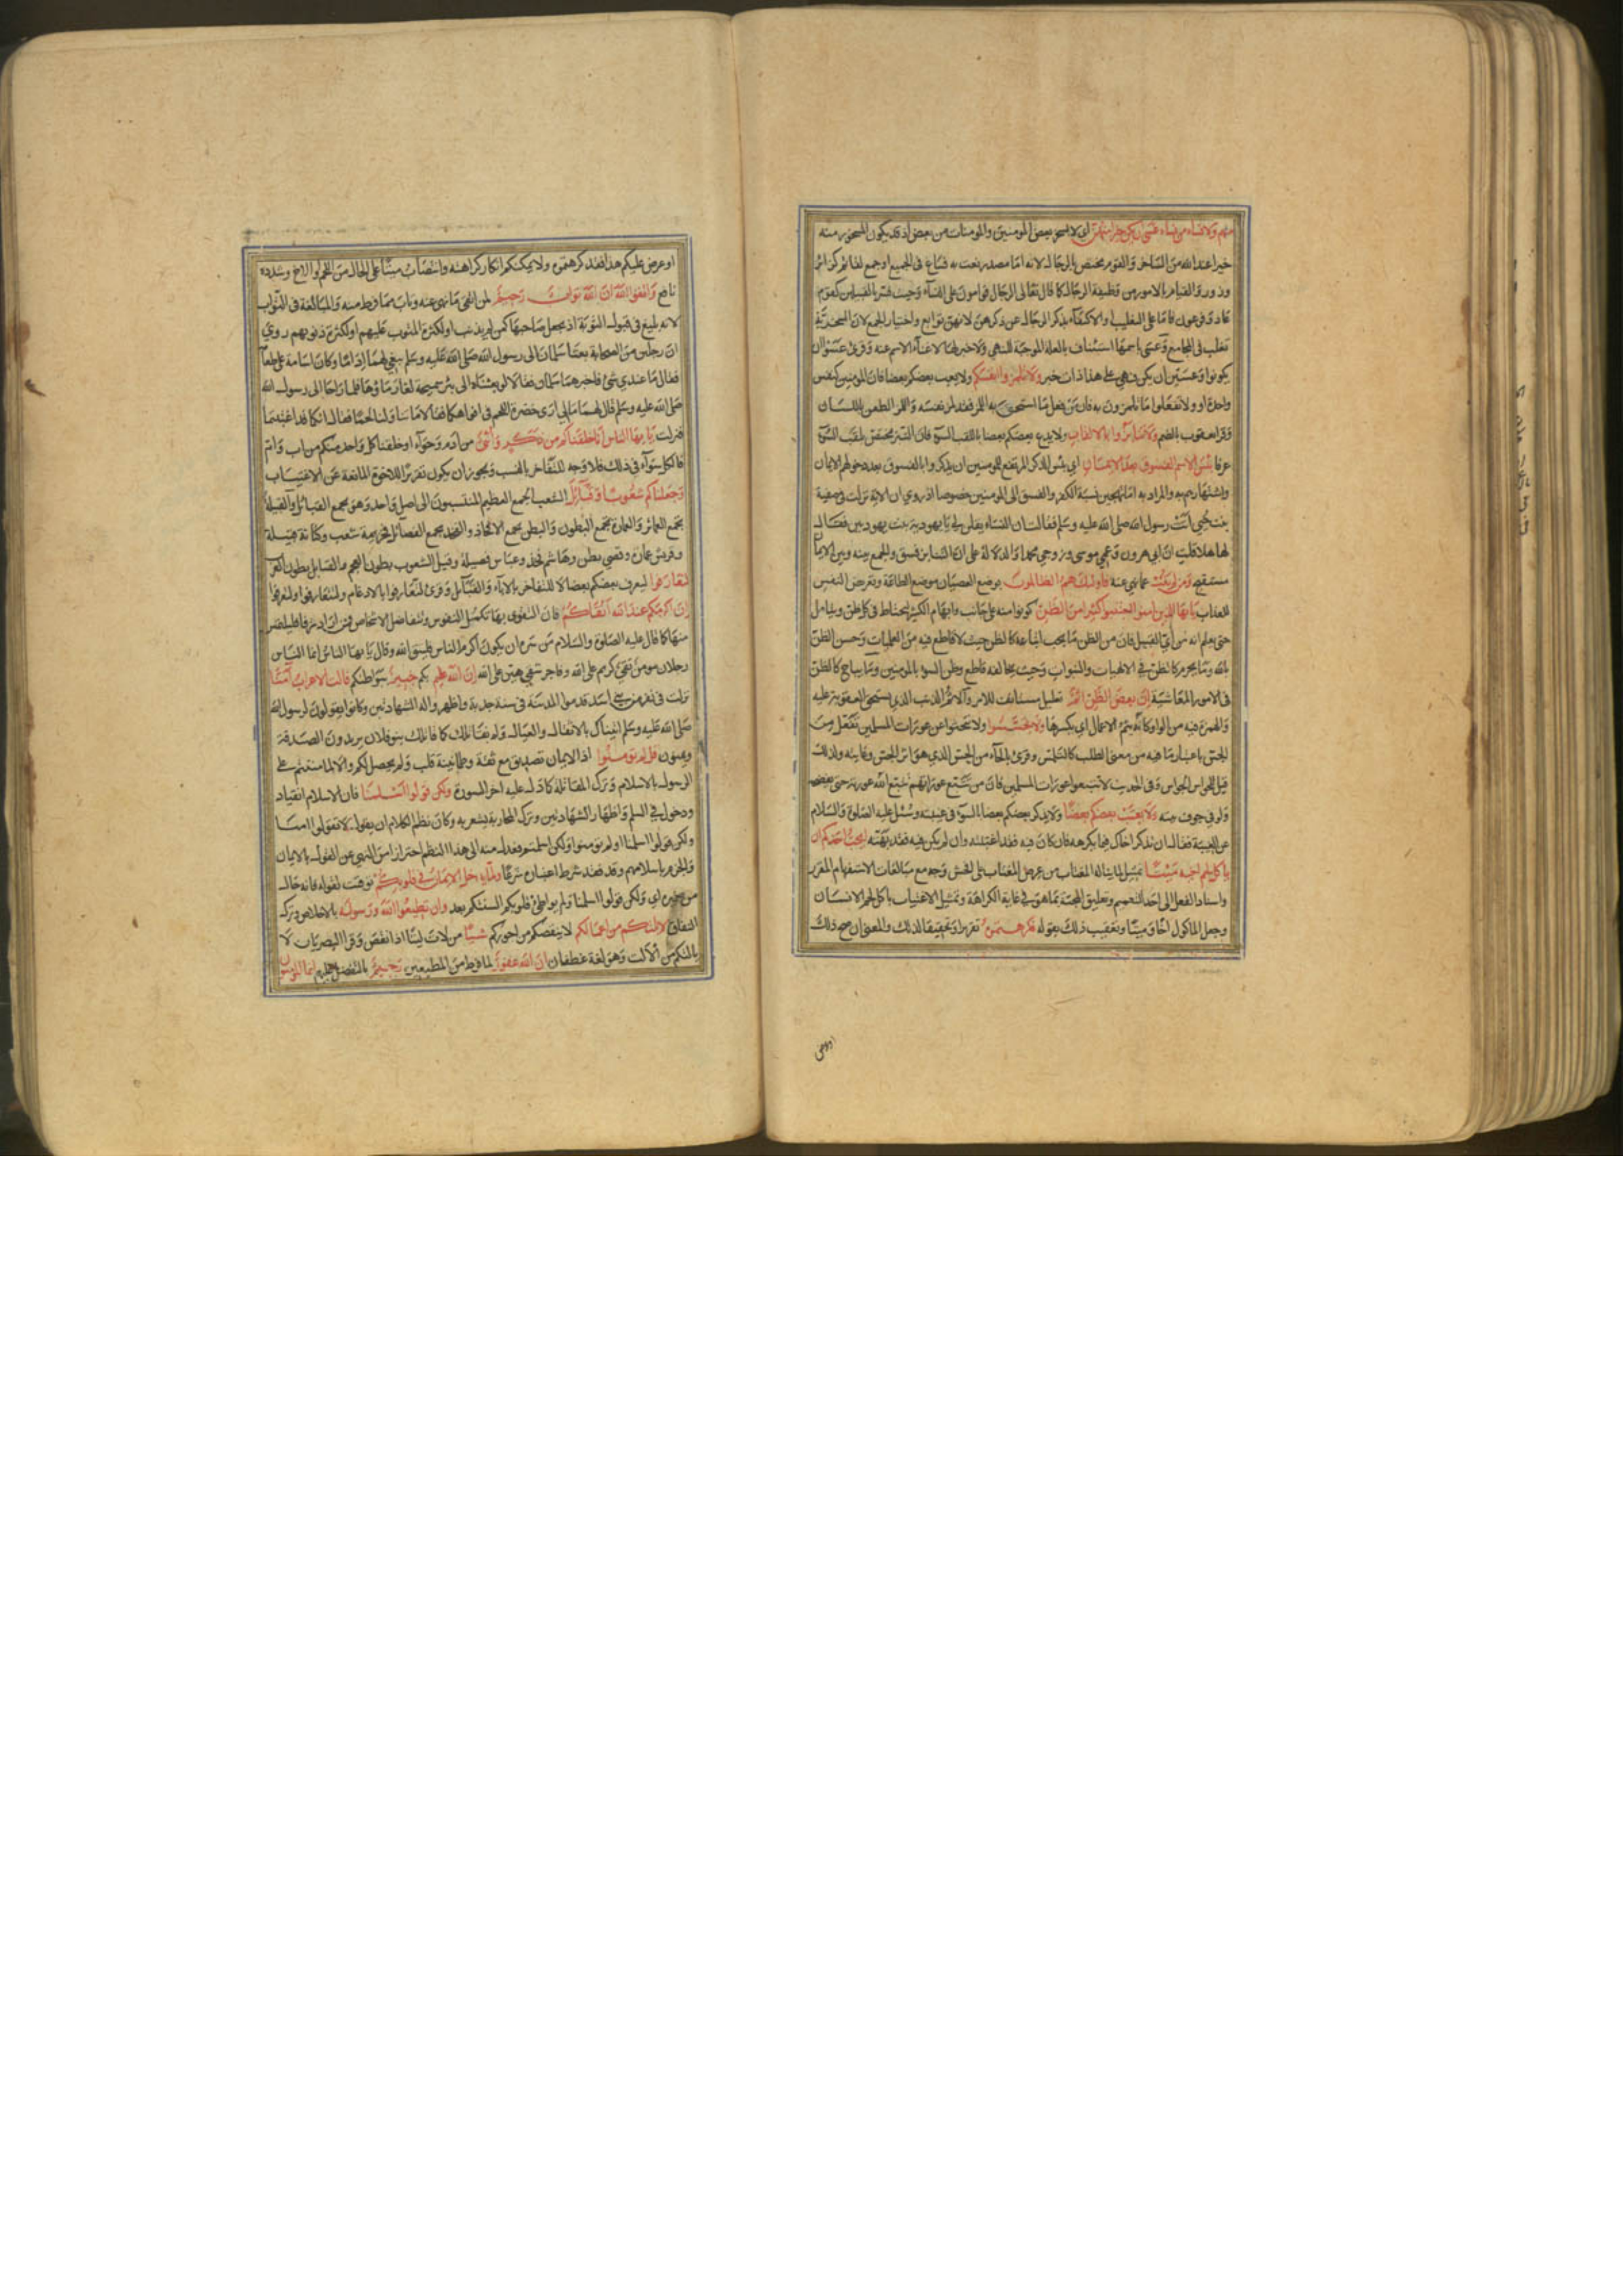 منهم ولا نساء من نساء عسى ان يكن خيرا منهن اي لا يسخر بعض المومنين والمومنات من بعض اذ قد يكون المسخور منه
خيرا عند الله من الساخر والقوم مختص بالرجال لانه اما مصدر نعت به فشاع في الجميع او جمع لقائم كزائر
وزور والقيام بالامور من وظيفة الرجال كما قال تعالى الرجال قوامون على النساء وحيث فسر بالقبيلين كقوم
عاد وفرعون فاما على التغليب او الاكتفاء بذكر الرجال عن ذكرهن لانهن توابع واختيار الجمع لان السخرية
تغلب في المجامع وعسى باسمها استئناف بالعلة الموجبة للنهي ولا خبر لها لاغناء الاسم عنه وقرئ عسوا ان
يكونوا وعسين ان يكن فهي على هذا ذات خبر ولا تلمزوا انفسكم ولا يعب بعضكم بعضا فان المومنين كنفس
واحدة او ولا تفعلوا ما تلمزون به فان من فعل ما استحق به اللمز فقد لمز نفسه واللمز الطعن باللسان
وقرا يعقوب بالضم ولا تنابزوا بالالقاب ولا يدع بعضكم بعضا باللقب السوء فان النبز مختص بلقب السوء
عرفا بئس الاسم الفسوق بعد الايمان اي بئس الذكر المرتفع للمومنين ان يذكروا بالفسوق بعد دخولهم الايمان
واشتهارهم به والمراد به اما تهجين نسبة الكفر والفسق الى المومنين خصوصا اذ روي ان الاية نزلت في صفية
بنت حيي اتت رسول الله صلى الله عليه وسلم فقالت ان النساء يقلن لي يا يهودية بنت يهوديين فقال
لها هلا قلت ان ابي هرون وعمي موسى وزوجي محمد او الدلالة على ان التنابز فسق والجمع بينه وبين الايمان
مستقبح ومن لم يتب عما نهي عنه فاولئك هم الظالمون بوضع العصيان موضع الطاعة وتعريض النفس
للعذاب يا ايها الذين امنوا اجتنبوا كثيرا من الظن كونوا منه على جانب وابهام الكثير ليحتاط في كل ظن ويتامل
حتى يعلم انه من اي القبيل فان من الظن ما يجب اتباعه كالظن حيث لا قاطع فيه من العمليات وحسن الظن
بالله وما يحرم كالظن في الالهيات والنبوات وحيث يخالفه قاطع وظن السوء بالمومنين وما يباح كالظن
في الامور المعاشية ان بعض الظن اثم تعليل مستانف للامر والاثم الذنب الذي يستحق العقوبة عليه
والهمزة فيه من الواو كانه يثم الاعمال اي يكسرها ولا تجسسوا ولا تبحثوا عن عورات المسلمين تفعل من
الجس باعتبار ما فيه من معنى الطلب كالتلمس وقرئ بالحاء من الحس الذي هو اثر الجس وغايته ولذلك
قيل للحواس الجواس وفي الحديث لا تتبعوا عورات المسلمين فان من تتبع عوراتهم تتبع الله عورته حتى يفضحه
ولو في جوف بيته ولا يغتب بعضكم بعضا ولا يذكر بعضكم بعضا بالسوء في غيبته وسئل عليه الصلوة والسلام
عن الغيبة فقال ان تذكر اخاك فيما يكرهه فان كان فيه فقد اغتبته وان لم يكن فيه فقد بهته ايحب احدكم ان
ياكل لحم اخيه ميتا تمثيل لما يناله المغتاب من عرض المغتاب على افحش وجه مع مبالغات الاستفهام المقرر
واسناد الفعل الى احد للتعميم وتعليق المحبة بما هو في غاية الكراهة وتمثيل الاغتياب باكل لحم الانسان
وجعل الماكول اخا وميتا وتعقيب ذلك بقوله فكرهتموه تقريرا وتحقيقا لذلك والمعنى ان صح ذلك
او عرض
او عرض عليكم هذا فقد كرهتموه ولا يمكنكم انكار كراهته وانتصاب ميتا على الحال من اللحم او الاخ وشدده
نافع واتقوا الله ان الله تواب رحيم لمن اتقى ما نهي عنه وتاب مما فرط منه والمبالغة في التواب
لانه بليغ في قبول التوبة اذ يجعل صاحبها كمن لم يذنب او لكثرة المتوب عليهم او لكثرة ذنوبهم روي
ان رجلين من الصحابة بعثا سلمان الى رسول الله صلى الله عليه وسلم يبغي لهما اداما وكان اسامة على طعامه
فقال ما عندي شئ فاخبرهما سلمان فقالا لو بعثناه الى بئر سميحة لغار ماؤها فلما راحا الى رسول الله
صلى الله عليه وسلم قال لهما ما لي ارى خضرة اللحم في افواهكما فقالا ما تناولنا لحما فقال انكما قد اغتبتما
فنزلت يا ايها الناس انا خلقناكم من ذكر وانثى من ادم وحواء او خلقنا كل واحد منكم من اب وام
فالكل سواء في ذلك فلا وجه للتفاخر بالنسب ويجوز ان يكون تقريرا للاخوة المانعة عن الاغتياب
وجعلناكم شعوبا وقبائل الشعب الجمع العظيم المنتسبون الى اصل واحد وهو يجمع القبائل والقبيلة
تجمع العمائر والعمارة تجمع البطون والبطن يجمع الافخاذ والفخذ يجمع الفصائل فخزيمة شعب وكنانة قبيلة
وقريش عمارة وقصي بطن وهاشم فخذ وعباس فصيلة وقيل الشعوب بطون العجم والقبايل بطون العرب
لتعارفوا ليعرف بعضكم بعضا لا للتفاخر بالاباء والقبائل وقرئ لتعارفوا بالادغام ولتتعارفوا ولتعرفوا
ان اكرمكم عند الله اتقاكم فان التقوى بها تكمل النفوس وتتفاضل الاشخاص فمن اراد شرفا فليلتمس
منها كما قال عليه الصلوة والسلام من سره ان يكون اكرم الناس فليتق الله وقال يا ايها الناس انما الناس
رجلان مومن تقي كريم على الله وفاجر شقي هين على الله ان الله عليم بكم خبير ببواطنكم قالت الاعراب امنا
نزلت في نفر من بني اسد قدموا المدينة في سنة جدبة واظهروا الشهادتين وكانوا يقولون لرسول الله
صلى الله عليه وسلم اتيناك بالاثقال والعيال ولم نقاتلك كما قاتلك بنو فلان يريدون الصدقة
ويمنون قل لم تومنوا اذ الايمان تصديق مع ثقة وطمانينة قلب ولم يحصل لكم والا لما مننتم على
الرسول بالاسلام وترك المقاتلة كما دل عليه اخر السورة ولكن قولوا اسلمنا فان الاسلام انقياد
ودخول في السلم واظهار الشهادتين وترك المحاربة يشعر به وكان نظم الكلام ان يقول لا تقولوا امنا
ولكن قولوا اسلمنا او لم تومنوا ولكن اسلمتم فعدل منه الى هذا النظم احترازا من النهي عن القول بالايمان
والجزم باسلامهم وقد فقد شرط اعتباره شرعا ولما يدخل الايمان في قلوبكم توقيت لقولوا فانه حال
من ضميره اي ولكن قولوا اسلمنا ولم يواطئ قلوبكم السنتكم بعد وان تطيعوا الله ورسوله بالاخلاص وترك
النفاق لا يلتكم من اعمالكم لا ينقصكم من اجوركم شيئا من لات ليتا اذا نقص وقرا البصريان لا
يالتكم من الالت وهو لغة غطفان ان الله غفور لما فرط من المطيعين رحيم بالتفضل عليهم انما المومنون